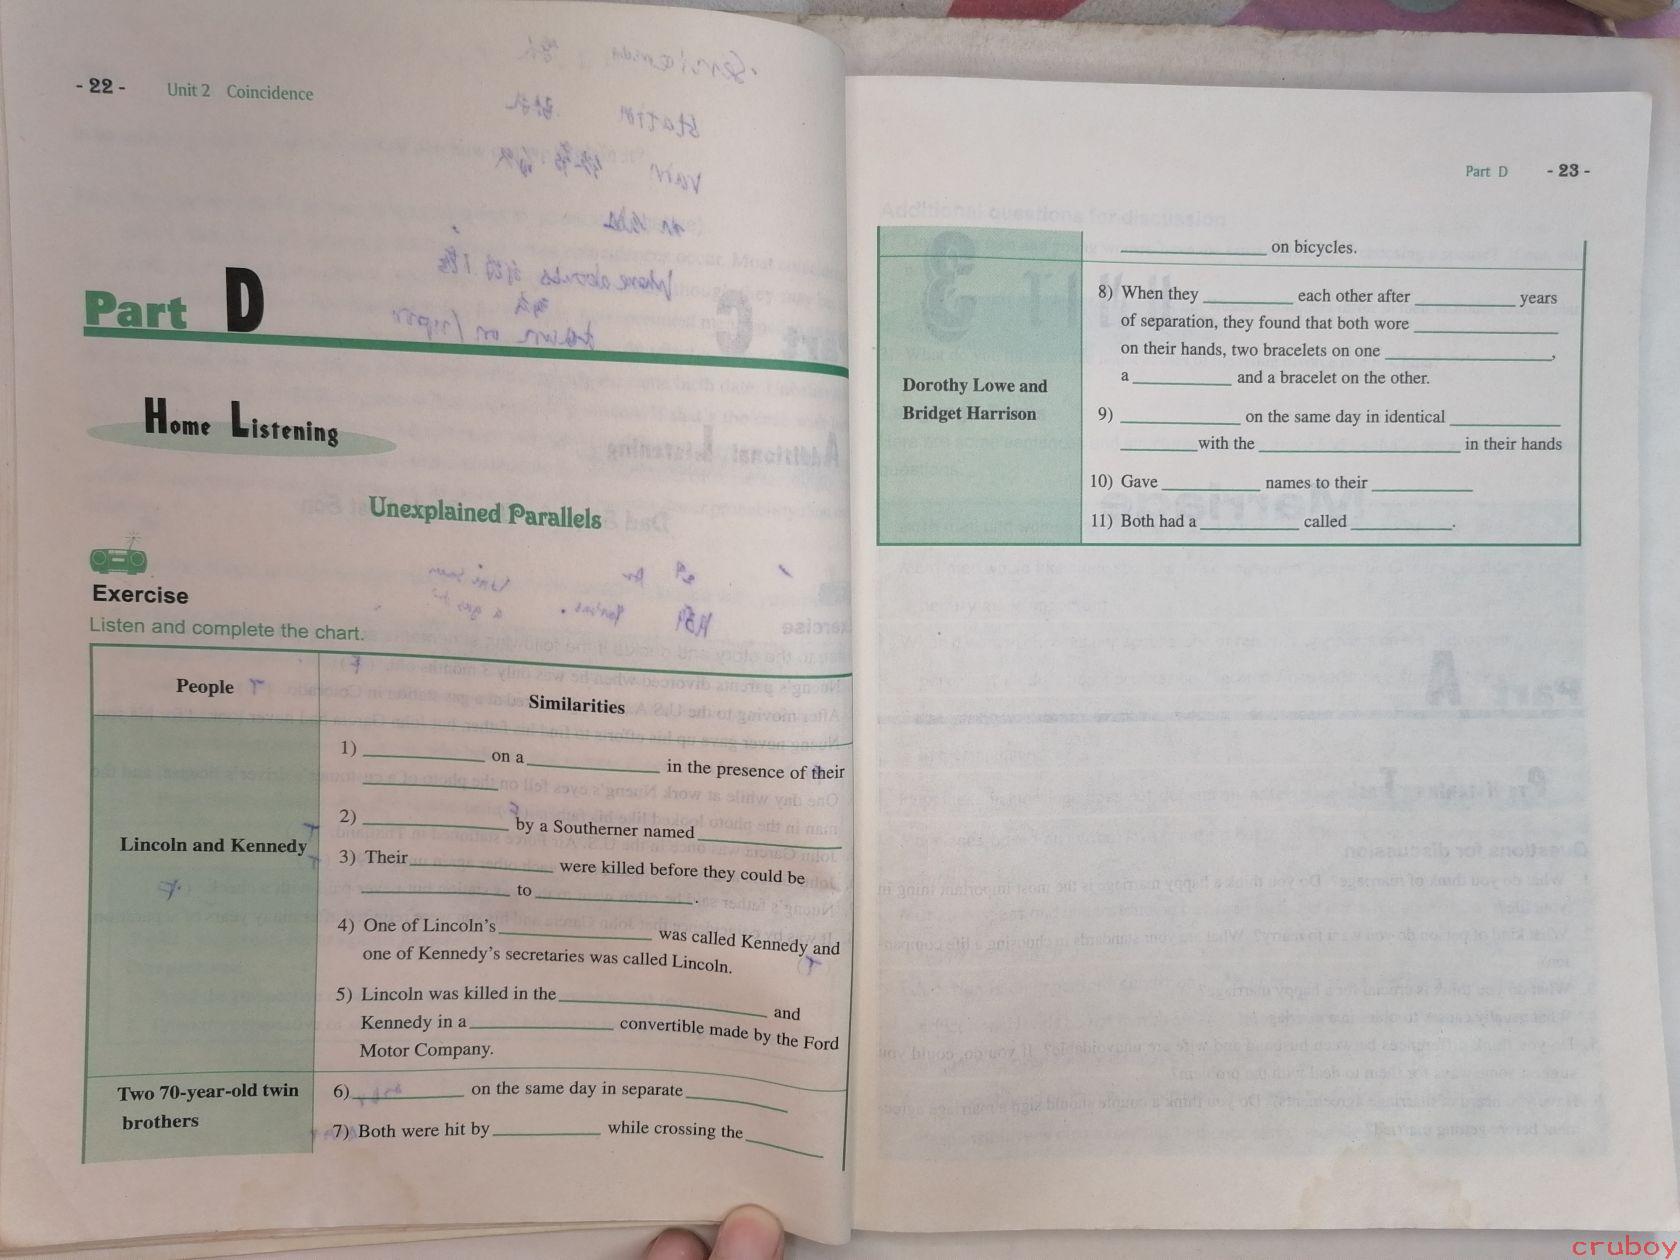 - 22 -
Unit 2 Coincidence
Part D
Home Listening
Unexplained Parallels
Exercise
Listen and complete the chart.
People
Similarities
Lincoln and Kennedy
1) ____________ on a ____________ in the presence of their
____________
2) ____________ by a Southerner named ____________
3) Their ____________ were killed before they could be
____________ to ____________.
4) One of Lincoln's ____________ was called Kennedy and
one of Kennedy's secretaries was called Lincoln.
5) Lincoln was killed in the ____________ and
Kennedy in a ____________ convertible made by the Ford
Motor Company.
Two 70-year-old twin
brothers
6) ____________ on the same day in separate ____________
7) Both were hit by ____________ while crossing the ____________
Part D
- 23 -
____________ on bicycles.
Dorothy Lowe and
Bridget Harrison
8) When they ____________ each other after ____________ years
of separation, they found that both wore ____________
on their hands, two bracelets on one ____________,
a ____________ and a bracelet on the other.
9) ____________ on the same day in identical ____________
____________ with the ____________ in their hands
10) Gave ____________ names to their ____________
11) Both had a ____________ called ____________.
cruboy